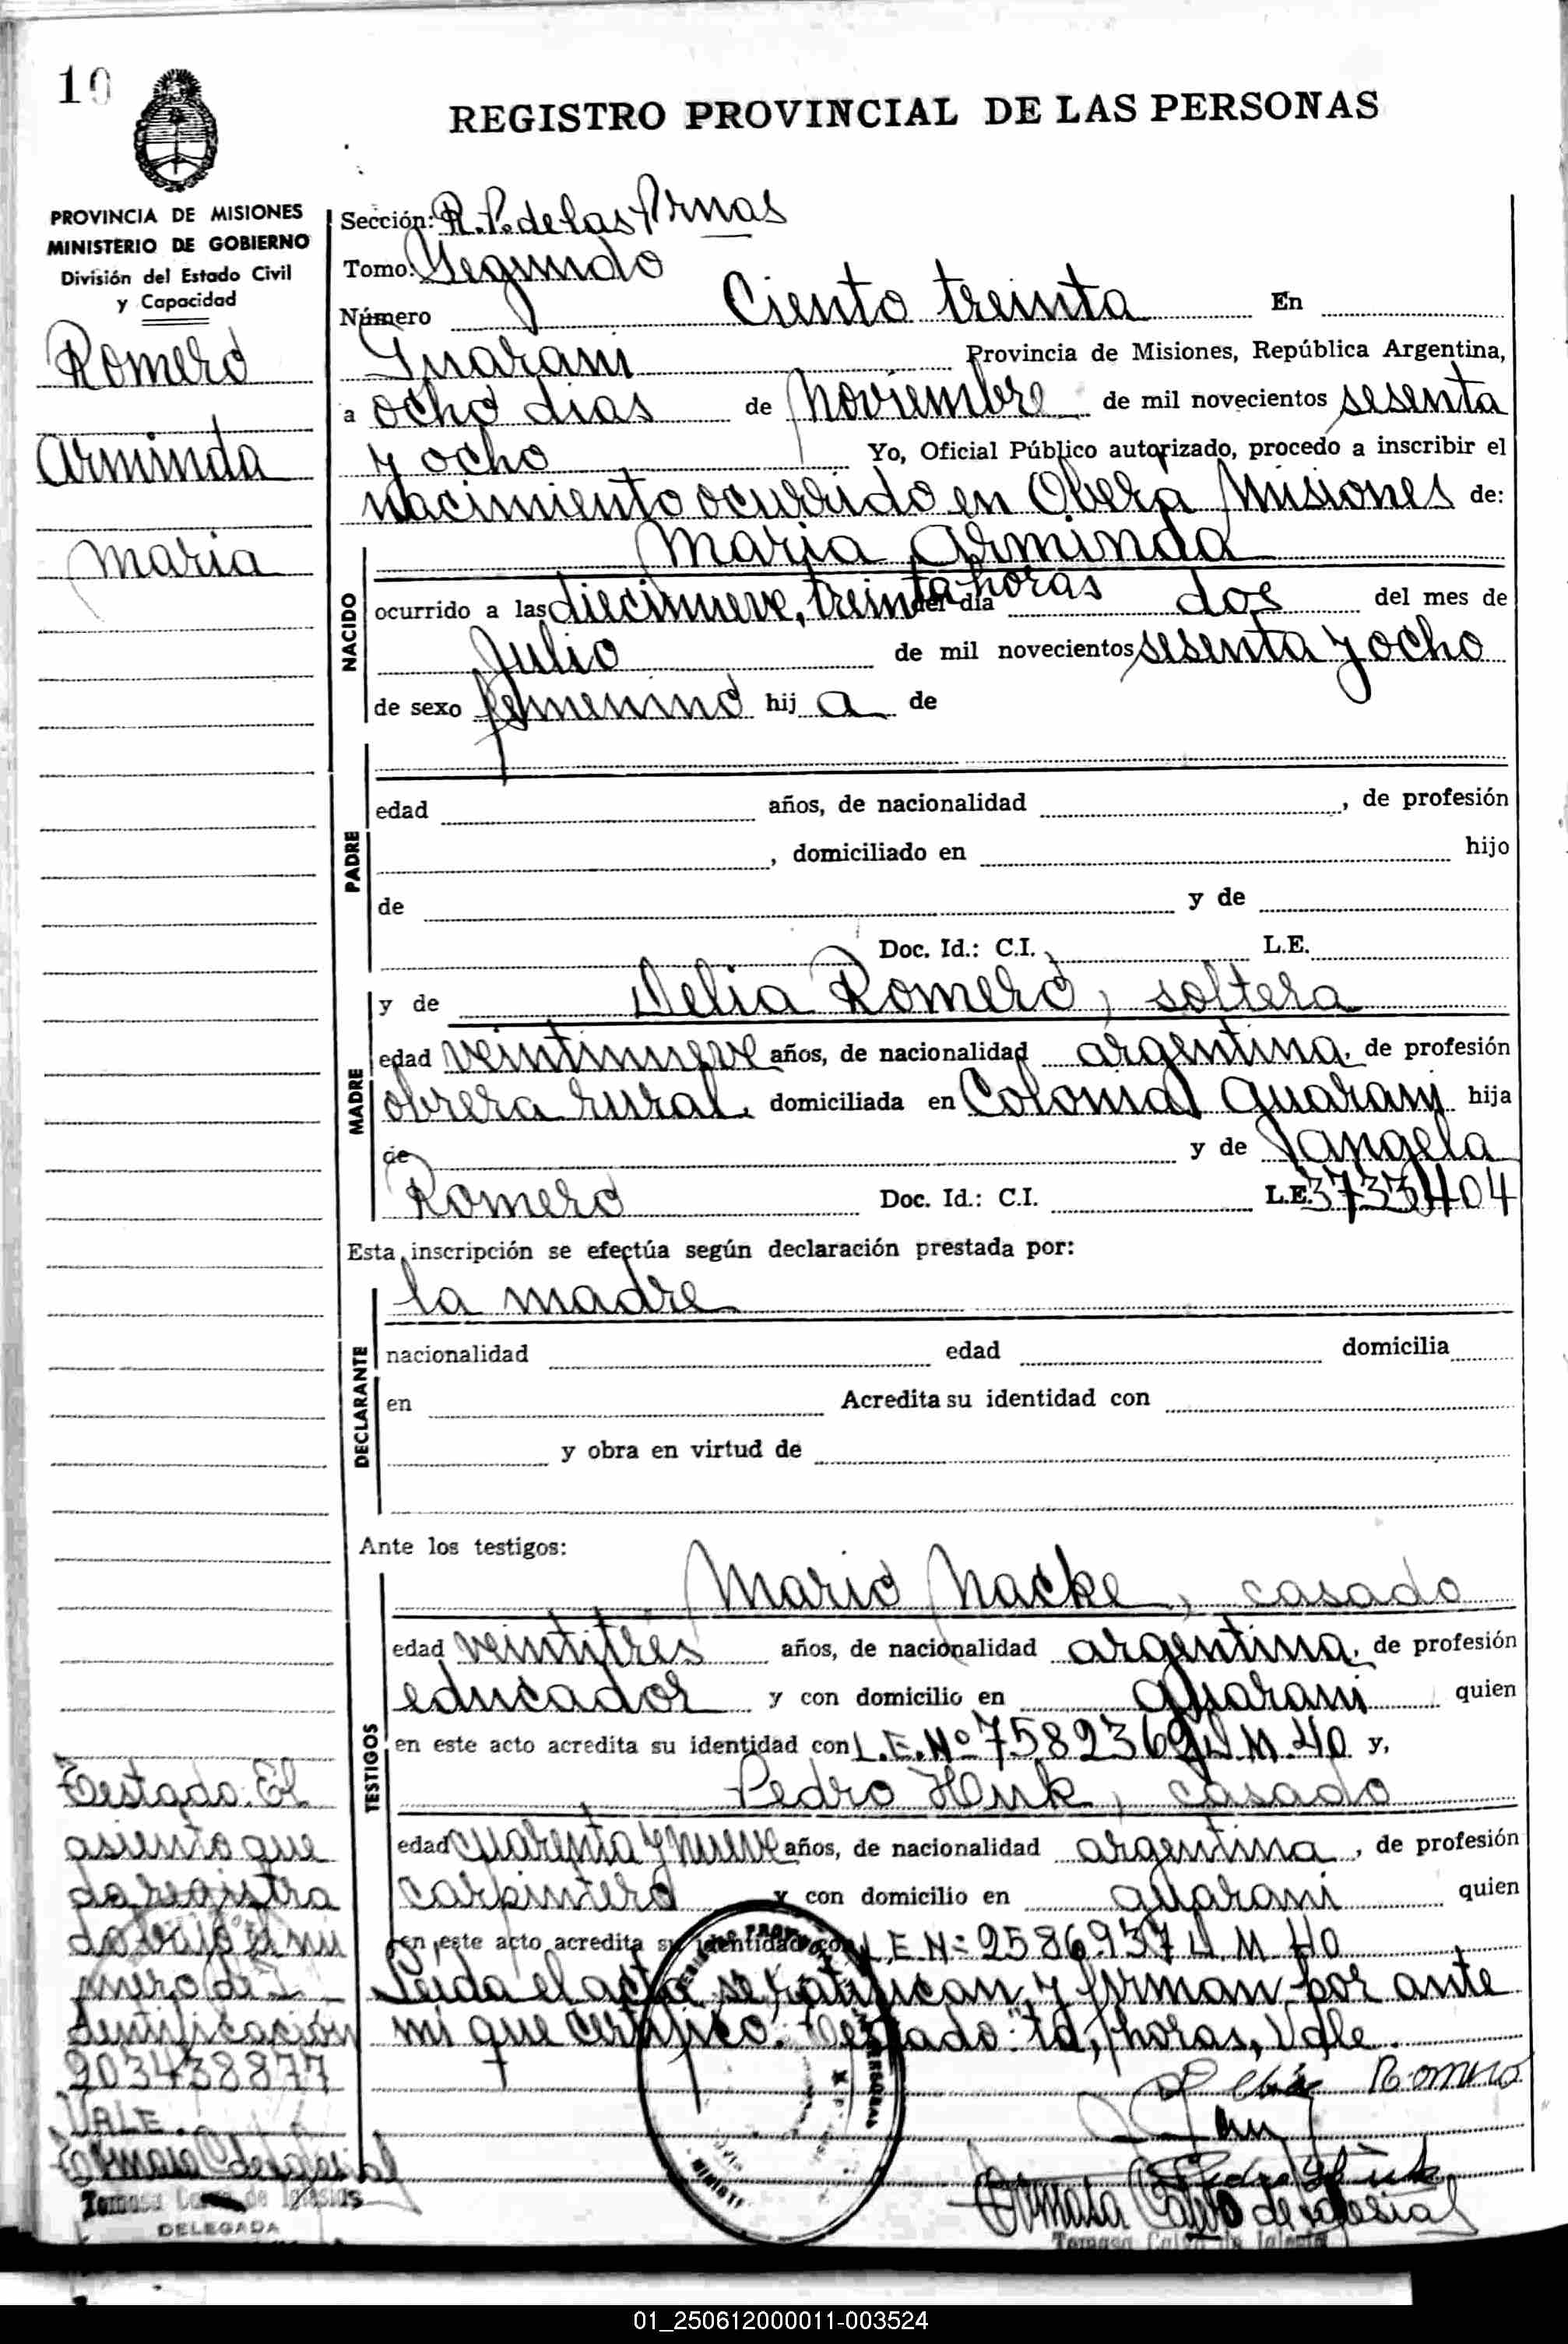 10
REGISTRO PROVINCIAL DE LAS PERSONAS
PROVINCIA DE MISIONES
MINISTERIO DE GOBIERNO
División del Estado Civil
y Capacidad
Romero
Arminda
Maria
Sección: R. P. de las Prnas
Tomo: Segundo
Número Ciento treinta En
Guarani Provincia de Misiones, República Argentina,
a ocho dias de Noviembre de mil novecientos sesenta
y ocho Yo, Oficial Público autorizado, procedo a inscribir el
nacimiento ocurrido en Obera Misiones de:
Maria Arminda
NACIDO
ocurrido a las diecinueve, treinta horas del día dos del mes de
Julio de mil novecientos sesenta y ocho
de sexo femenino hij a de
PADRE
edad años, de nacionalidad , de profesión
, domiciliado en hijo
de y de
Doc. Id.: C.I. L.E.
MADRE
y de Delia Romero, soltera
edad veintinueve años, de nacionalidad argentina, de profesión
obrera rural, domiciliada en Colonia Guarany hija
de y de
Romero Doc. Id.: C.I. L.E. 3733404
Esta inscripción se efectúa según declaración prestada por:
DECLARANTE
la madre
nacionalidad edad domicilia
en Acredita su identidad con
y obra en virtud de
Ante los testigos:
TESTIGOS
Mario Nacke, casado
edad veintitres años, de nacionalidad argentina, de profesión
educador y con domicilio en guarani quien
en este acto acredita su identidad con L.E. Nº 7582369 D M. 40 y,
Pedro Henk, casado
edad cuarenta y nueve años, de nacionalidad argentina, de profesión
carpintero y con domicilio en guarani quien
en este acto acredita su identidad con L E Nº 2586937 D M 40
Leida el acta se ratifican y firman por ante
mi que certifico. Testado: td, horas, Vale.
Testado: El
asiento que
da registra
do bajo el nu
mero de I
dentificación
203438877
VALE.
Tomasa de Iglesias
DELEGADA
Delia Romero
Pedro Henk
Tomasa Calvo de Iglesias
01_250612000011-003524